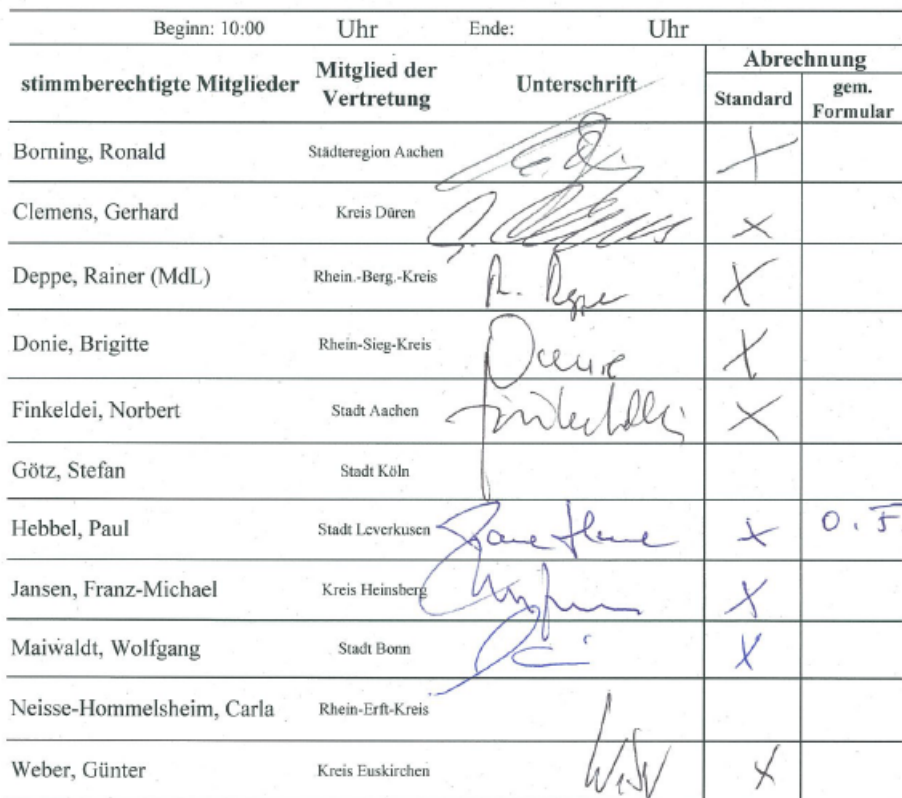 Beginn: 10:00 Uhr Ende: Uhr
stimmberechtigte Mitglieder Mitglied der Vertretung Unterschrift Abrechnung
Standard gem. Formular
Borning, Ronald Städteregion Aachen X
Clemens, Gerhard Kreis Düren X
Deppe, Rainer (MdL) Rhein.-Berg.-Kreis R. Deppe X
Donie, Brigitte Rhein-Sieg-Kreis Donie X
Finkeldei, Norbert Stadt Aachen Finkeldei X
Götz, Stefan Stadt Köln
Hebbel, Paul Stadt Leverkusen X O. F
Jansen, Franz-Michael Kreis Heinsberg X
Maiwaldt, Wolfgang Stadt Bonn X
Neisse-Hommelsheim, Carla Rhein-Erft-Kreis
Weber, Günter Kreis Euskirchen X